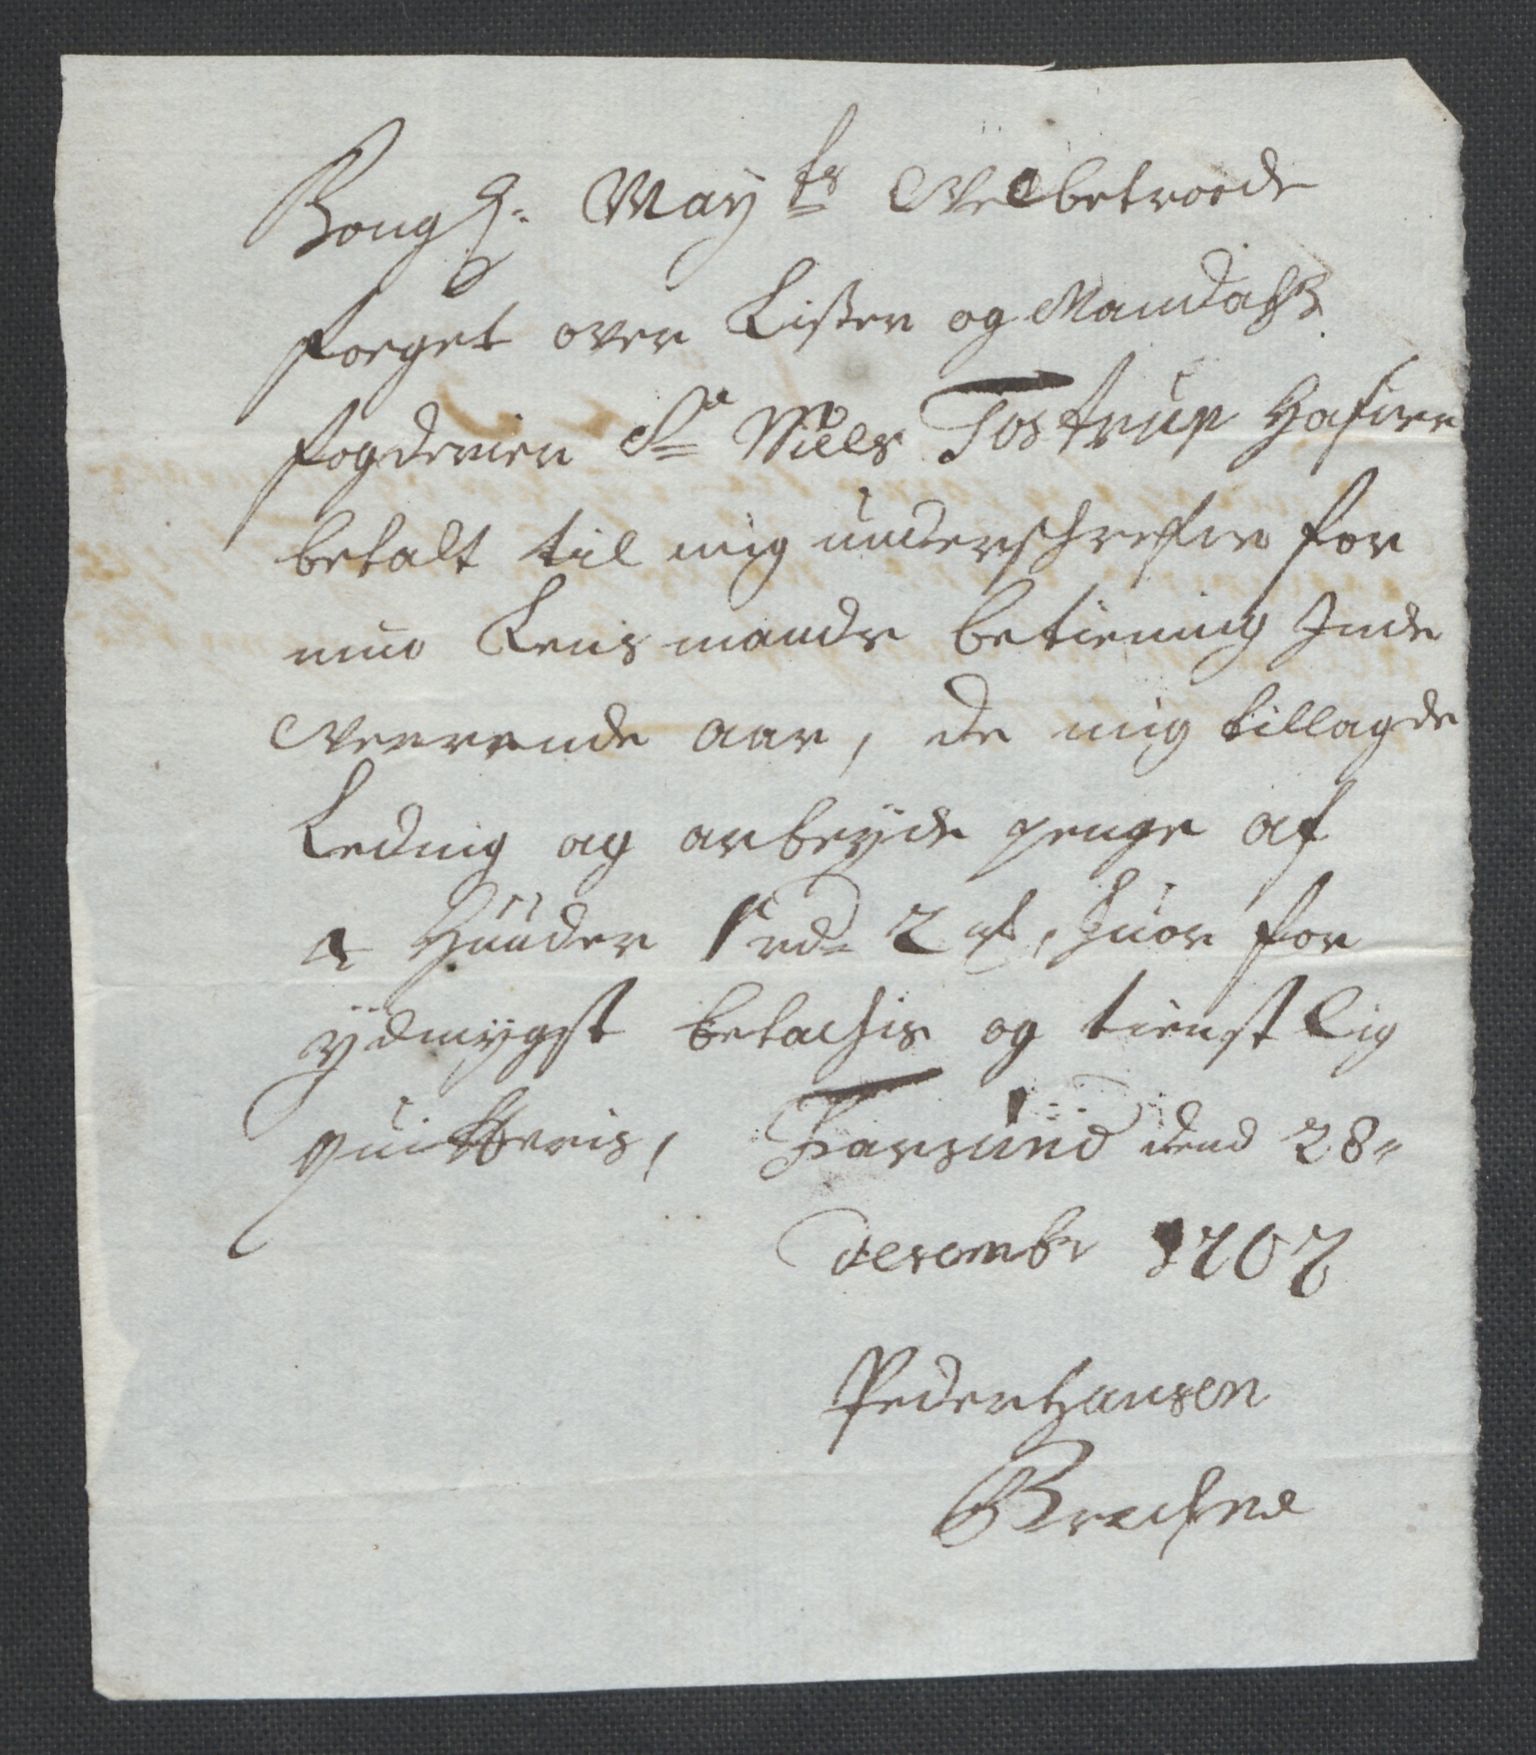 Kongl: Mayts Velbetroede
foeget over Lister og Mandahls
fogderier Sr Niels Tostrup hafver
betalt til mig underschrefne for
min Lensmands betiening Inde
veerende aar, de mig tillagde
Leding og arbeyds penge af
4 Huuder 1 rd 2 ort, huor for
ydmygst betackis og tienstlig
quitteris, Farsund dend 28
Decembr 1707
Peder hansen